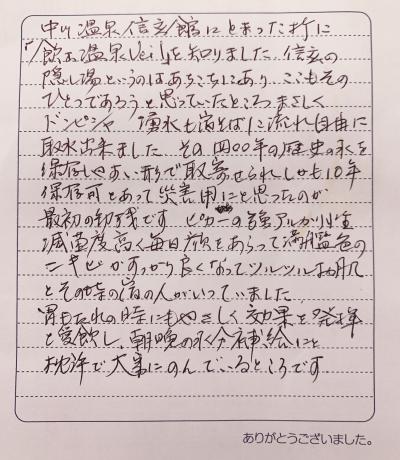 中川温泉信玄館にとまった折に
「飲む温泉」を知りました。信玄の
隠し湯というのはあちこちにあり、ここもその
ひとつであろうと思っていたところ、まさしく
ドンピシャ 湧水も宿そばに流れ自由に
取水出来ました その四〇〇年の歴史の水を
保存しやすい形で取寄せられ、しかも10年
保存可とあって災害用にと思ったのが
最初の動機です ピカ一の強アルカリ性
減菌度高く毎日顔をあらって満艦色の
ニキビがすっかり良くなってツルツルお肌
とその時の宿の人がいっていました
胃もたれの時にもやさしく効果を発揮
と愛飲し、朝晩の水分補給にと
枕許で大事にのんでいるところです
ありがとうございました。